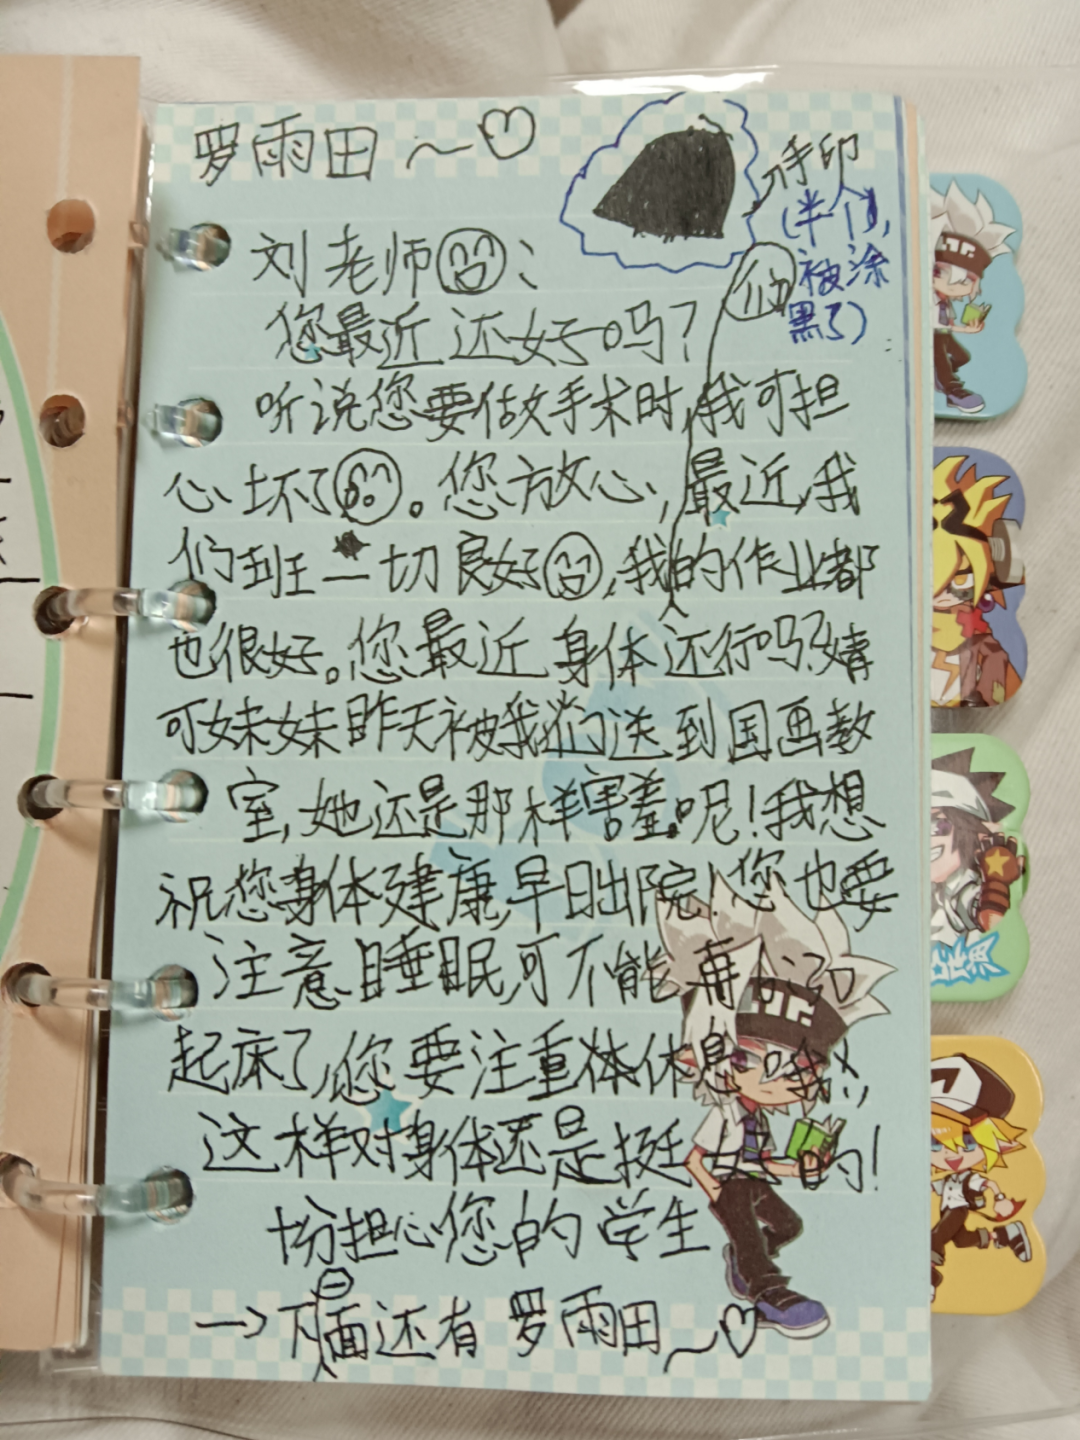 罗雨田~♡
手印
(半个,
被涂
黑了)
刘老师:
您最近还好吗?
听说您要做手术时,我可担
心坏了。您放心,最近,我
们班一切良好,我们的作业都
也很好。您最近身体还行吗?婧
可妹妹昨天被我们送到国画教
室,她还是那样害羞呢!我想
祝您身体健康,早日出院!您也要
注意睡眠,可不能再6:30
起床了,您要注重休息哦!,
这样对身体还是挺好的!
担心您的学生
→下一面还有 罗雨田~♡